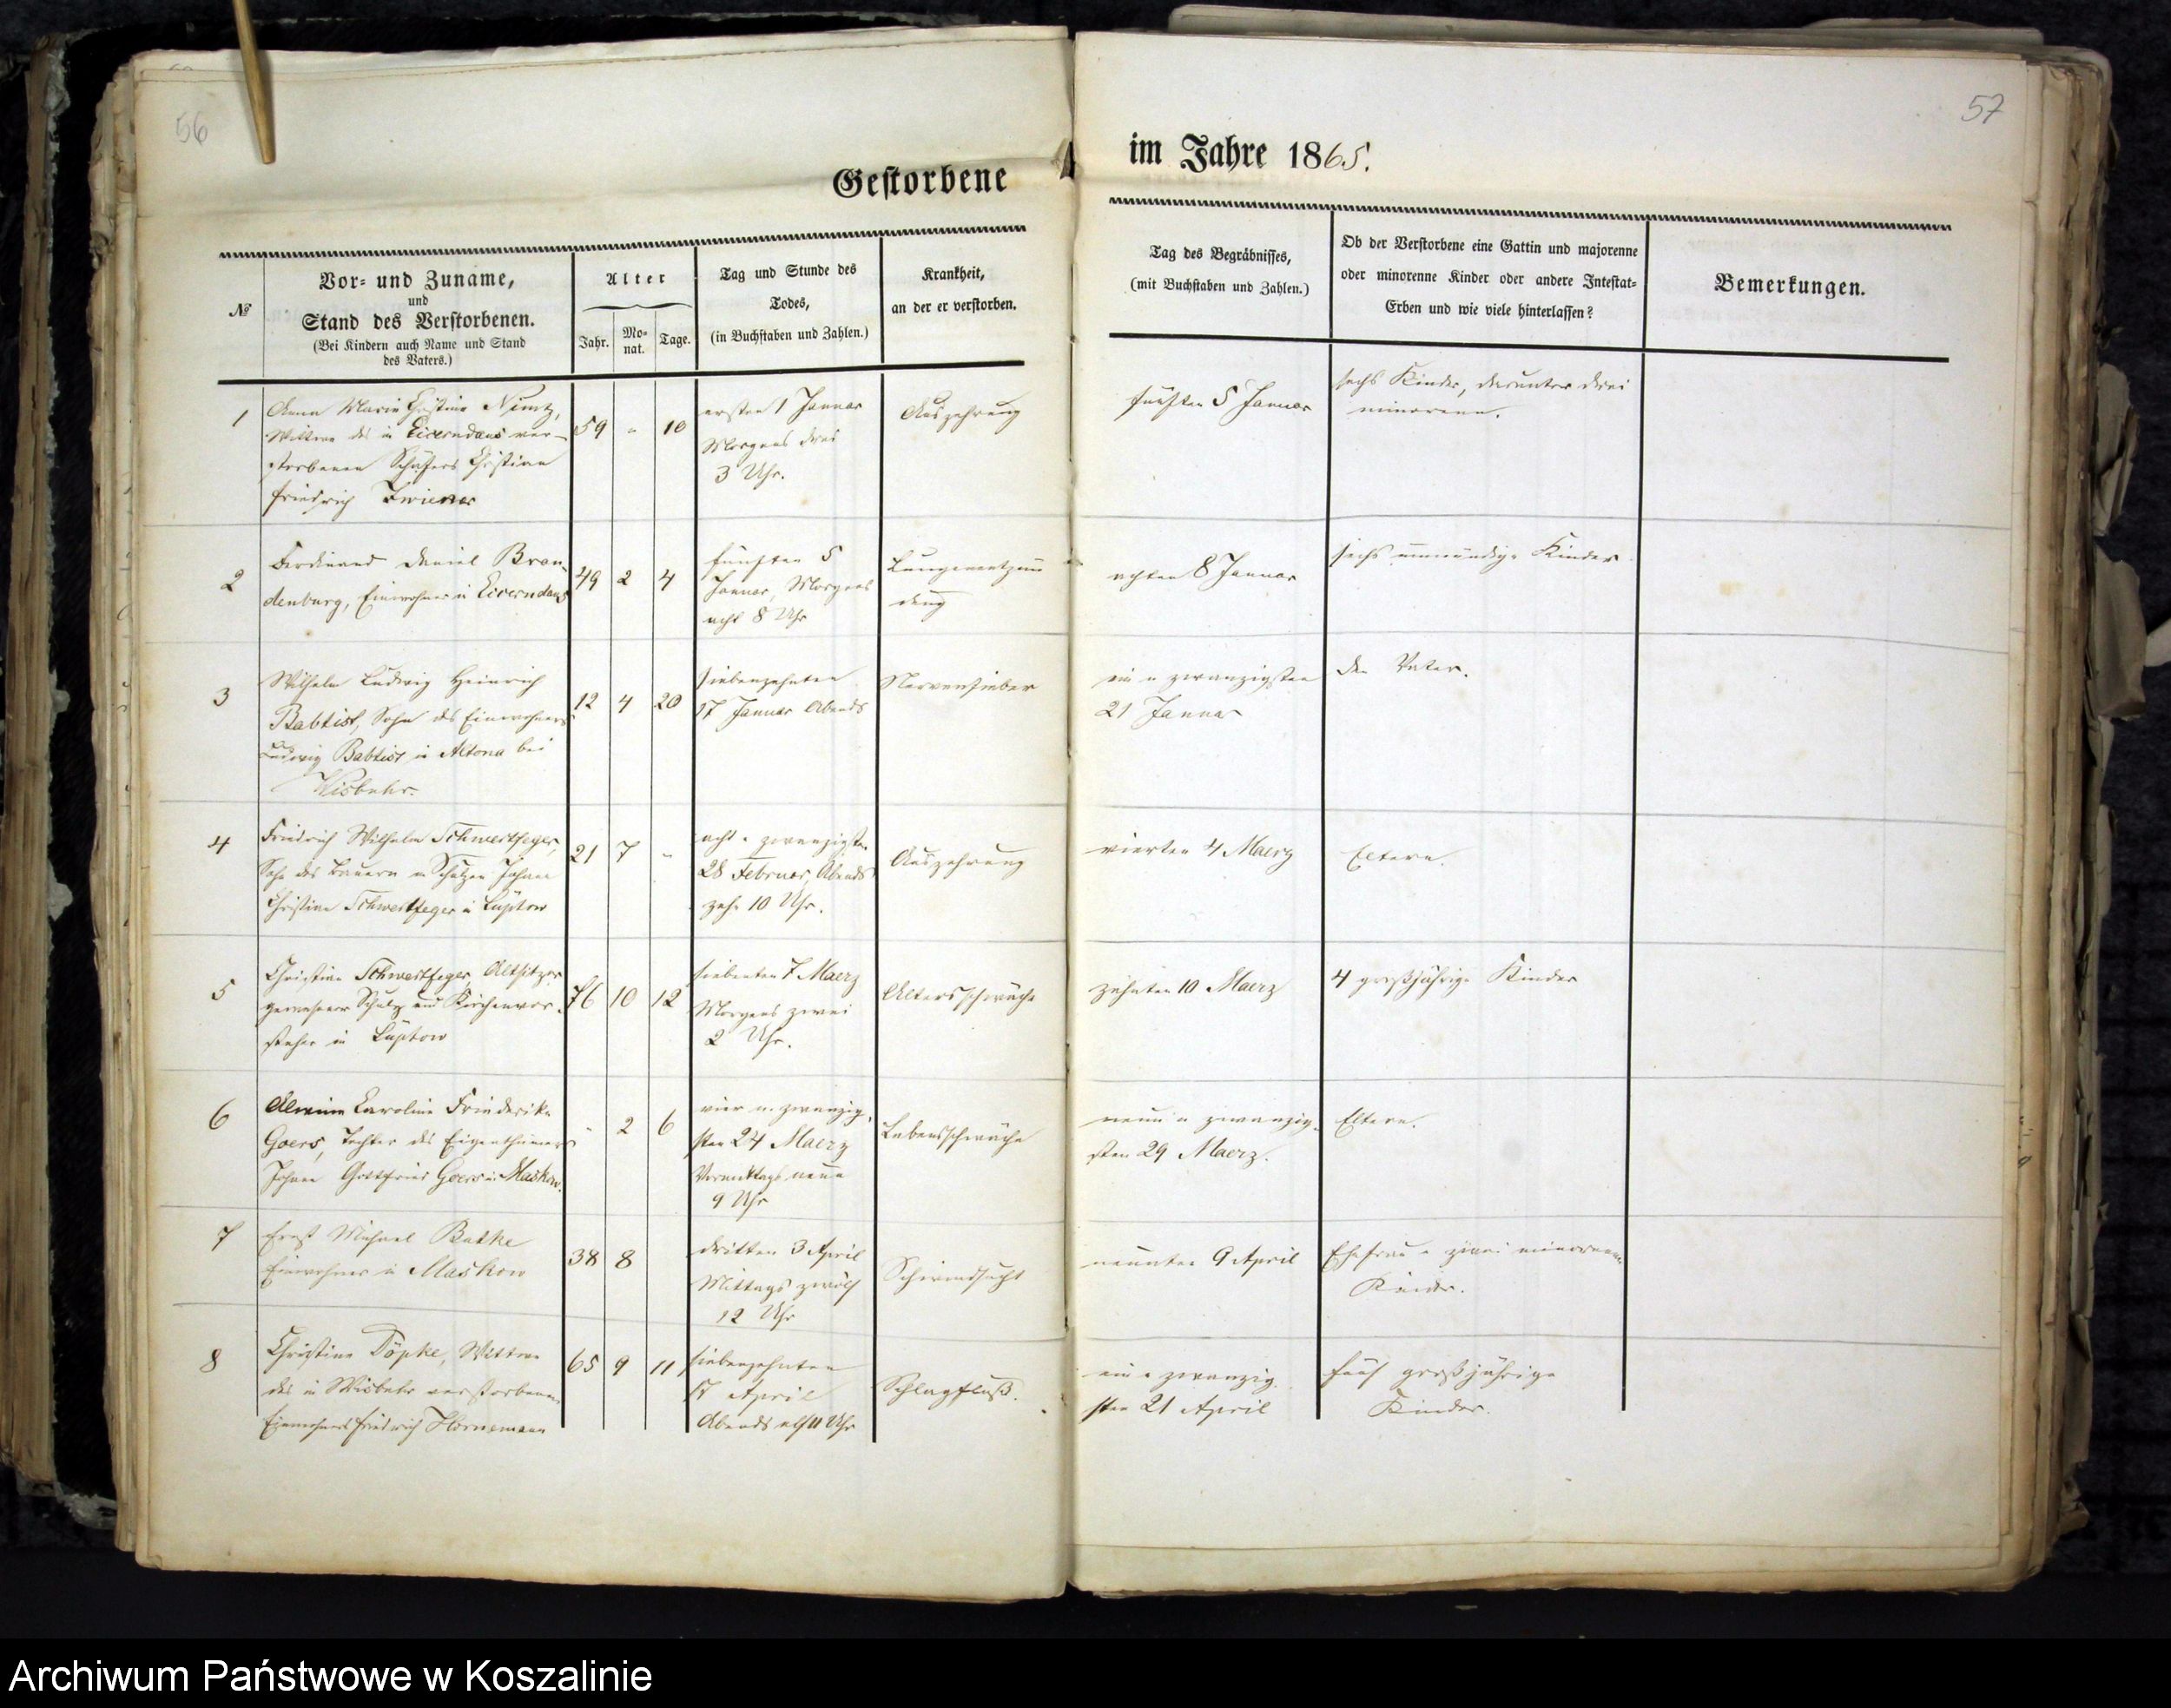 56
57
Gestorbene
im Jahre 1865.
№
Vor- und Zuname,
und
Stand des Verstorbenen.
(Bei Kindern auch Name und Stand
des Vaters.)
Alter
Jahr.
Mo-
nat.
Tage.
Tag und Stunde des
Todes,
(in Buchstaben und Zahlen.)
Krankheit,
an der er verstorben.
Tag des Begräbnisses,
(mit Buchstaben und Zahlen.)
Ob der Verstorbene eine Gattin und majorenne
oder minorenne Kinder oder andere Intestat-
Erben und wie viele hinterlassen?
Bemerkungen.
1
Anna Marie Christine
Wittwe des in ver-
storbenen Schäfers Christian
Friedrich
59 " 10
ersten 1 Januar
Morgens drei
3 Uhr.
Auszehrung
fünften 5 Januar
sechs Kinder, darunter drei
minorenn.
2
Ferdinand Daniel Bran-
denburg, Einwohner in
49 2 4
fünften 5
Januar, Morgens
acht 8 Uhr
Lungenentzün
dung
achten 8 Januar
sechs unmündige Kinder
3
Wilhelm Ludwig Heinrich
Babtist, Sohn des Einwohners
Ludwig Babtist in Altona bei
Wisbuhr.
12 4 20
siebenzehnten
17 Januar Abends
Nervenfieber
ein u zwanzigsten
21 Januar
den Vater.
4
Friedrich Wilhelm Schwertfeger,
Sohn des Bauern u Schulzen Johann
Christian Schwertfeger in Lüptow
21 7 "
acht u zwanzigsten
28 Februar, Abends
zehn 10 Uhr.
Auszehrung
vierten 4 Maerz
Eltern.
5
Christian Schwertfeger, Altsitzer
gewesener Schulz und Kirchenvor-
steher in Lüptow
76 10 12
siebenten 7 Maerz
Morgens zwei
2 Uhr.
Altersschwäche
zehnten 10 Maerz
4 großjährige Kinder
6
Alwine Caroline Friederike
Goers, Tochter des Eigenthümers
Johann Gottfried Goers in Maskow.
" 2 6
vier u. zwanzig-
sten 24 Maerz
Vormittags neun
9 Uhr
Lebensschwäche
neun u zwanzig-
sten 29 Maerz.
Eltern.
7
Ernst Michael
Einwohner in Maskow
38 8
dritten 3 April
Mittags zwölf
12 Uhr
Schwindsucht
neunten 9 April
Ehefrau u zwei minorenne
Kinder.
8
Christine Döpke, Wittwe
des in Wisbuhr verstorbenen
Einwohners Friedrich Hornemann
65 9 11
siebenzehnten
17 April
Abends elf 11 Uhr
Schlagfluß.
ein u zwanzig-
sten 21 April
fünf großjährige
Kinder.
Archiwum Państwowe w Koszalinie